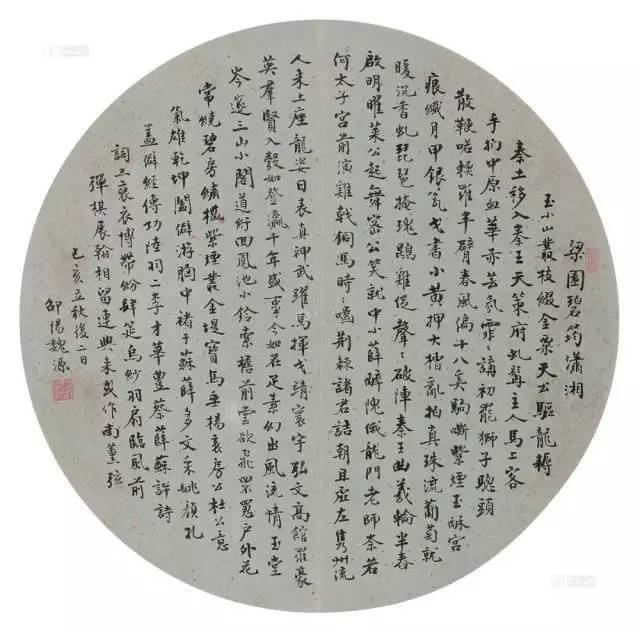 梁園碧筠瀟湘
玉小山叢枝綴金粟天公驅龍耨
秦土移入秦王天策府虬髯主人馬上客
手搏中原血華赤芸氛霏講初罷獅子驄頭
散鞭喏羅半臂春風偏十八奚騎嘶紫煙玉酥宮
痕纖月甲銀瓮戈書小黃押大楷亂拍真珠流葡萄就
暖沉香虬琵琶掩瑰鵾雞促聲々破陣秦王曲羲輪半春
啟明曜萊公起舞密公笑就中小薛醉隗俄龍門老師奈若
何太子宮前演雞戟銅馬時々嚙荆棘諸君詰朝且座左州流
人未上座龍姿日表真神武躍馬揮戈靖寰宇弘文高館羅豪
英羣賢入彀如登瀛千年盛事今如在尺素幻出風流情玉堂
岑邃三山小閣道紆回鳳池小鈴索舊前雲欲飛罘罳戶外花
常繞碧房繡檻紫煙叢金堤寶馬垂楊裊房公杜公意
氣雄乾坤闔僻游胸中褚于蘇薛多文采姚顏孔
蓋僻經傳功陸羽二李才華豊蔡薛蘇詳詩
詞上裒衣博帶紛肆筵烏紗羽扇臨風前
彈棋展翰相留連興來或作南薰弦
己亥立秋後二日
邵陽魏源